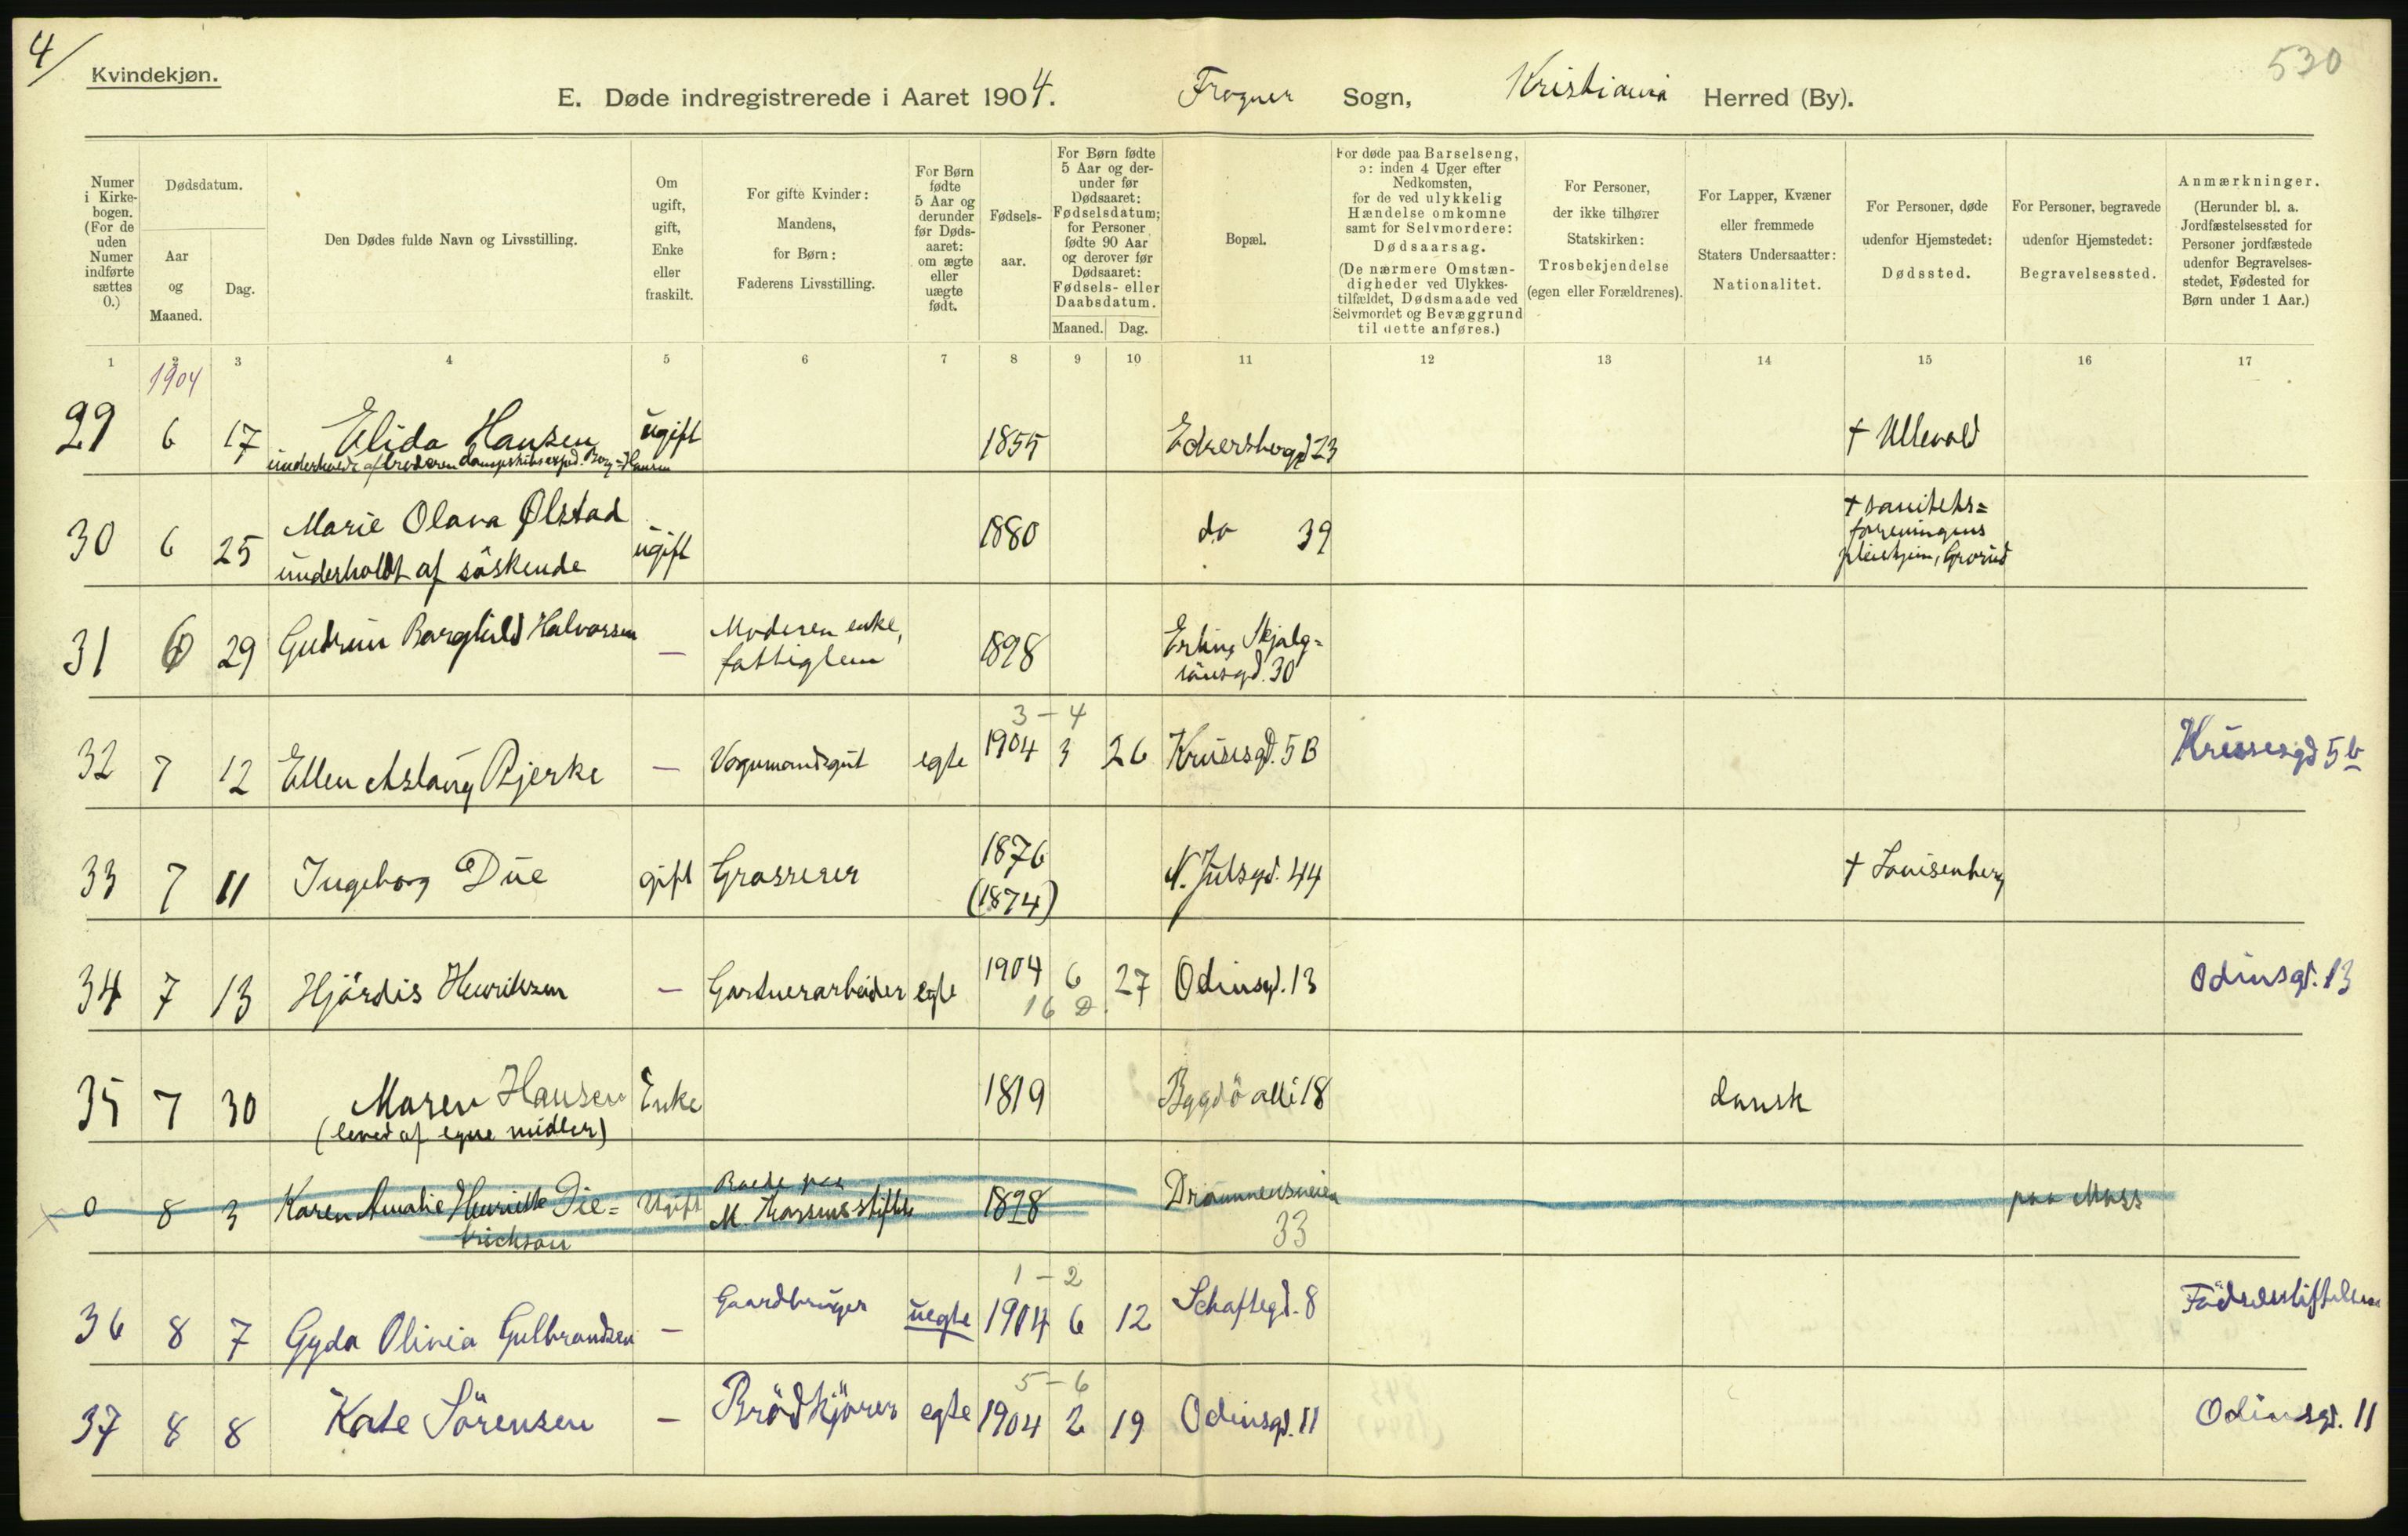 4/
Kvindekjøn.
530
E. Døde indregistrerede i Aaret 1904. Frogner Sogn, Kristiania Herred (By).
Numer i Kirke-bogen. (For de uden Numer indførte sættes 0.)
Dødsdatum.
Aar og Maaned.
Dag.
Den Dødes fulde Navn og Livsstilling.
Om ugift, gift, Enke eller fraskilt.
For gifte Kvinder: Mandens, for Børn: Faderens Livsstilling.
For Børn fødte 5 Aar og derunder før Døds-aaret: om ægte eller uægte født.
Fødsels-aar.
For Børn fødte 5 Aar og der-under før Dødsaaret: Fødselsdatum; for Personer fødte 90 Aar og derover før Dødsaaret: Fødsels- eller Daabsdatum.
Maaned. Dag.
Bopæl.
For døde paa Barselseng, ɔ: inden 4 Uger efter Nedkomsten, for de ved ulykkelig Hændelse omkomne samt for Selvmordere: Dødsaarsag. (De nærmere Omstæn-digheder ved Ulykkes-tilfældet, Dødsmaade ved Selvmordet og Bevæggrund til dette anføres.)
For Personer, der ikke tilhører Statskirken: Trosbekjendelse (egen eller Forældrenes).
For Lapper, Kvæner eller fremmede Staters Undersaatter: Nationalitet.
For Personer, døde udenfor Hjemstedet: Dødssted.
For Personer, begravede udenfor Hjemstedet: Begravelsessted.
Anmærkninger. (Herunder bl. a. Jordfæstelsessted for Personer jordfæstede udenfor Begravelses-stedet, Fødested for Børn under 1 Aar.)
1 2 3 4 5 6 7 8 9 10 11 12 13 14 15 16 17
1904
29 6 17 Elida Hansen ugift 1855 Eckersbergd 23 † Ullevold
underholdt af broderen dampskibsexped. Borg-Hansen
30 6 25 Marie Olava Ølstad ugift 1880 do 39 † sanitets=
foreningens
pleiehjem, Grorud
underholdt af söskende
31 6 29 Gudrun Borghild Halvorsen — Moderen enke, 1898 Erling Skjalg=
fattiglem sönsgd. 30
3 – 4
32 7 12 Ellen Aslaug Bjerke — Vognmandsgut egte 1904 3 26 Krusesgd. 5 B Krusesgd 5 b
33 7 11 Ingeborg Due gift Grosserer 1876 N. Julsgd. 44 † Lovisenberg
(1874)
34 7 13 Hjördis Henriksen — Gartnerarbeider egte 1904 6 27 Odinsgd. 13 Odinsgd. 13
16 D.
35 7 30 Maren Hansen Enke 1819 Bygdö allé 18 dansk
(leved af egne midler)
x 0 8 3 Karen Amalie Henriette Die= Ugift Boede paa 1828 Drammensveien paa Moss
trichson M. Thranes stiftelse 33
1 – 2
36 8 7 Gyda Olivia Gulbrandsen — Gaardbruger uegte 1904 6 12 Schaftegd. 8 Födselsstiftelsen
5 – 6
37 8 8 Kate Sörensen — Brödkjörer egte 1904 2 19 Odinsgd. 11 Odinsgd. 11